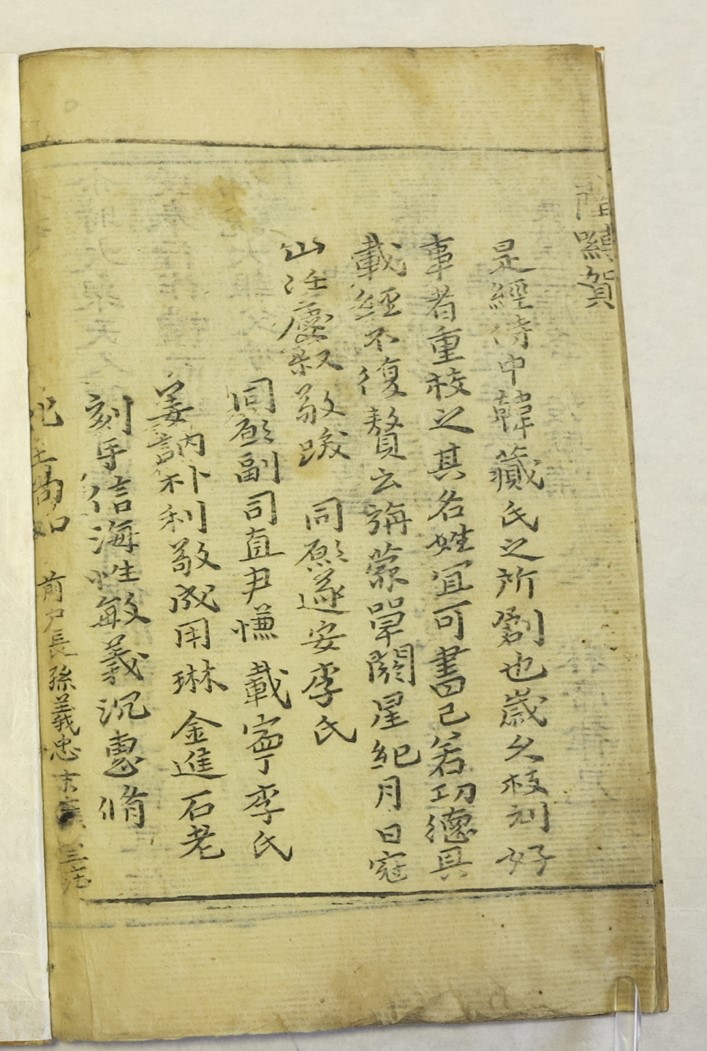 賀
是經侍中韓蕆氏之所劉也歲久板刓好
事者重校之其名姓宜可書已若功德具
載經不復贅云旃蒙單閼星紀月日寇
山任慶叔敬跋 同願遂安李氏
同願副司直尹慊 載寧李氏
姜訥朴利敬成用琳金進石老
刻手信海性敏義沉惠脩
前戶長孫義忠